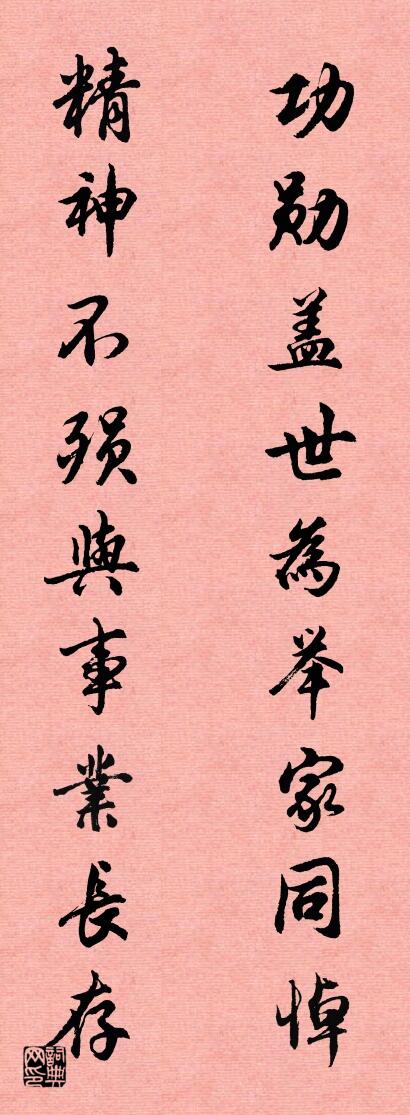 功勋盖世為举家同悼
精神不殒與事業長存
詞典网印